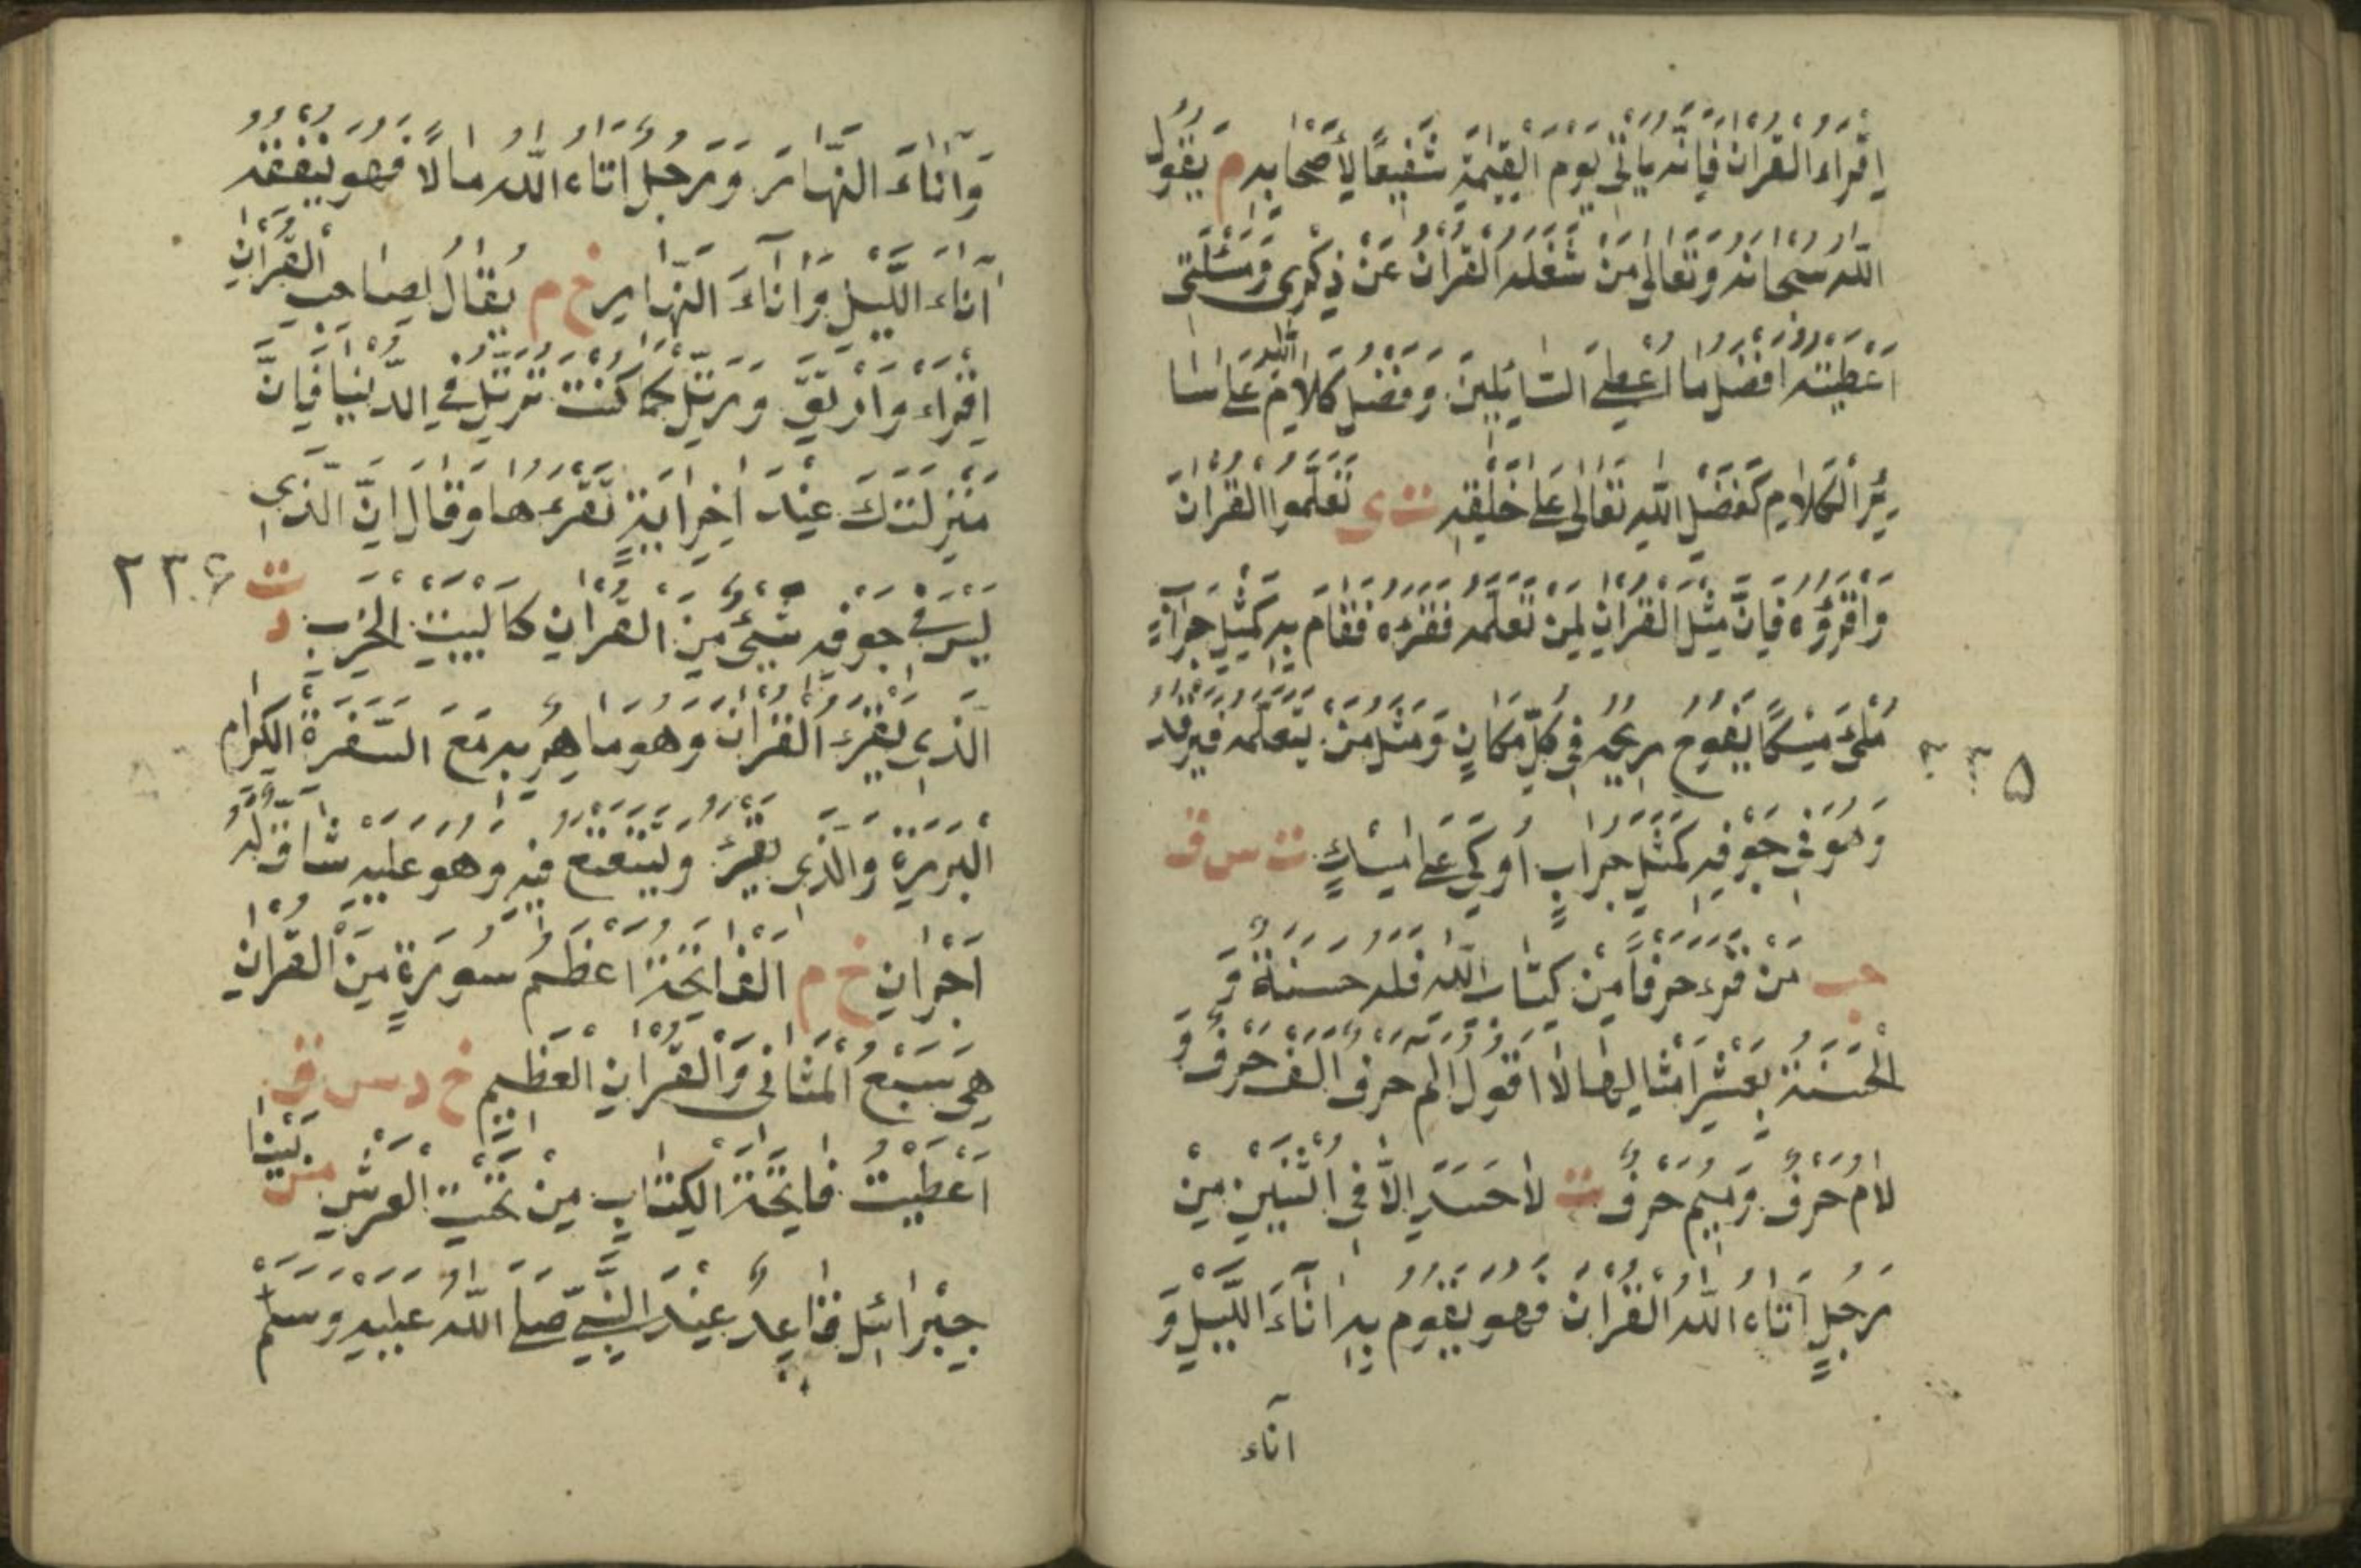 اِقْرَاءُ الْقُرْانَ فَاِنَّهُ يَاْتِى يَوْمَ الْقِيٰمَةِ شَفِيْعًا لِاَصْحَابِهِ م يَقُوْلُ
اللّٰهُ سُبْحَانَهُ وَتَعَالٰى مَنْ شَغَلَهُ الْقُرْانُ عَنْ ذِكْرِى وَمَسْئَلَتِى
اَعْطَيْتُهُ اَفْضَلَ مَا اُعْطِيَ السَّائِلِيْنَ وَفَضْلُ كَلَامِ اللّٰهِ عَلٰى سَا
ئِرِ الْكَلَامِ كَفَضْلِ اللّٰهِ تَعَالٰى عَلٰى خَلْقِهِ ت ى تَعَلَّمُوا الْقُرْانَ
وَاقْرَؤُهُ فَاِنَّ مِثْلَ الْقُرْانِ لِمَنْ تَعَلَّمَهُ فَقَرَءَهُ فَقَامَ بِهِ كَمِثْلِ جِرَابٍ
مُلِئَ مِسْكًا يَفُوْحُ رِيْحُهُ فِى كُلِّ مَكَانٍ وَمَثَلُ مَنْ يَتَعَلَّمُهُ فَيَرْقُدُ
٢٣٥
وَهُوَ فِى جَوْفِهِ كَمَثَلِ جِرَابٍ اُوْكِيَ عَلٰى مِسْكٍ ت س ق
حب مَنْ قَرَءَ حَرْفًا مِنْ كِتَابِ اللّٰهِ فَلَهُ حَسَنَةٌ وَ
الْحَسَنَةُ بِعَشْرِ اَمْثَالِهَا لَا اَقُوْلُ الم حَرْفٌ اَلِفٌ حَرْفٌ وَ
لَامٌ حَرْفٌ وَمِيْمٌ حَرْفٌ ت لَا حَسَدَ اِلَّا فِى اثْنَيْنِ مِنْ
رَجُلٍ اٰتَاهُ اللّٰهُ الْقُرْانَ فَهُوَ يَقُوْمُ بِهِ اٰنَاءَ اللَّيْلِ وَ
اٰنَاء
وَاٰنَاءَ النَّهَارِ وَرَجُلٌ اٰتَاهُ اللّٰهُ مَالًا فَهُوَ يُنْفِقُهُ
اٰنَاءَ اللَّيْلِ وَاٰنَاءَ النَّهَارِ خ م يُقَالُ لِصَاحِبِ الْقُرْانِ
اِقْرَاءْ وَارْتَقِ وَرَتِّلْ كَمَا كُنْتَ تُرَتِّلُ فِى الدُّنْيَا فَاِنَّ
مَنْزِلَتَكَ عِنْدَ اٰخِرِ اٰيَةٍ تَقْرَءُهَا وَقَالَ اِنَّ الَّذِى
لَيْسَ فِى جَوْفِهِ شَيْئٌ مِنَ الْقُرْانِ كَالْبَيْتِ الْخَرِبِ ت د
٢٣٦
اَلَّذِى يَقْرَءُ الْقُرْانَ وَهُوَ مَاهِرٌ بِهِ مَعَ السَّفَرَةِ الْكِرَامِ
الْبَرَرَةِ وَالَّذِى يَقْرَءُ وَيَتَتَعْتَعُ فِيْهِ وَهُوَ عَلَيْهِ شَاقٌّ لَهُ
اَجْرَانِ خ م اَلْفَاتِحَةُ اَعْظَمُ سُوْرَةٍ مِنَ الْقُرْانِ
هِىَ سَبْعُ الْمَثَانِى وَالْقُرْانِ الْعَظِيْمِ خ د س ق
اُعْطِيْتُ فَاتِحَةَ الْكِتَابِ مِنْ تَحْتِ الْعَرْشِ مس بَيْنَا
جِبْرَائِيْلُ قَاعِدٌ عِنْدَ النَّبِيِّ صَلَّى اللّٰهُ عَلَيْهِ وَسَلَّمَ